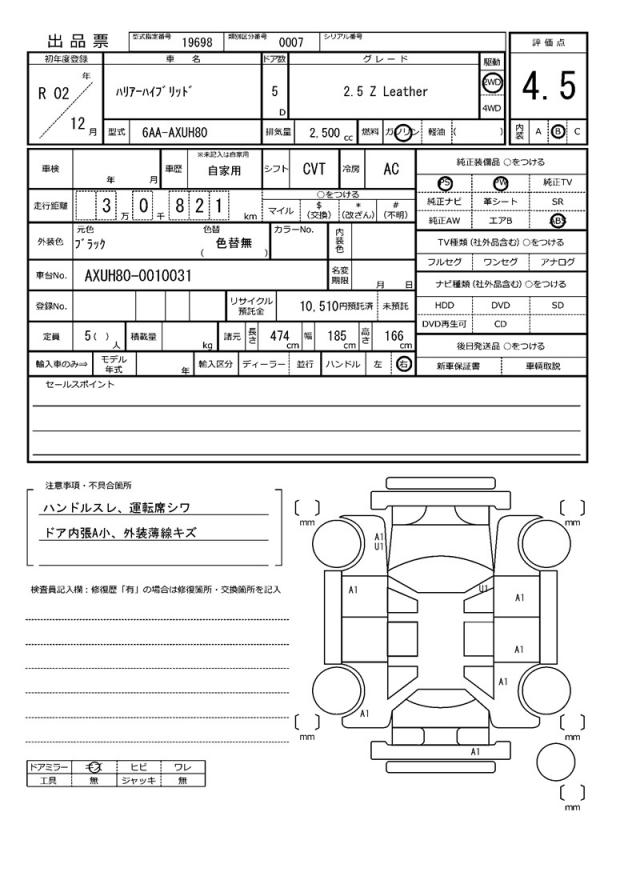 出品票 型式指定番号 19698 類別区分番号 0007 シリアル番号
評価点
4.5
内装 A B C
初年度登録 車名 ドア数 グレード 駆動
R 02 年 12 月 ハリアーハイブリッド 5 D 2.5 Z Leather 2WD 4WD
型式 6AA-AXUH80 排気量 2,500 cc 燃料 ガソリン 軽油 ( )
車検 年 月 車歴 ※未記入は自家用 自家用 シフト CVT 冷房 AC
走行距離 3 万 0 千 8 2 1 km ○をつける マイル $(交換) *(改ざん) #(不明)
外装色 元色 ブラック 色替 色替無 ( ) カラーNo. 内装色
車台No. AXUH80-0010031 名変期限 月 日
登録No. リサイクル預託金 10,510円預託済 未預託
定員 5( ) 人 積載量 kg 諸元 長さ 474 cm 幅 185 cm 高さ 166 cm
輸入車のみ⇒ モデル年式 年 輸入区分 ディーラー 並行 ハンドル 左 右
純正装備品 ○をつける
PS PW 純正TV
純正ナビ 革シート SR
純正AW エアB ABS
TV種類 (社外品含む) ○をつける
フルセグ ワンセグ アナログ
ナビ種類 (社外品含む) ○をつける
HDD DVD SD
DVD再生可 CD
後日発送品 ○をつける
新車保証書 車輌取説
セールスポイント
注意事項・不具合箇所
ハンドルスレ、運転席シワ
ドア内張A小、外装薄線キズ
検査員記入欄：修復歴「有」の場合は修復箇所・交換箇所を記入
ドアミラー キズ ヒビ ワレ
工具 無 ジャッキ 無
[ ] mm
[ ] mm
A1
U1
A1
U1
A1
A1
A1
A1
[ ] mm
[ ] mm
A1
[ ] mm